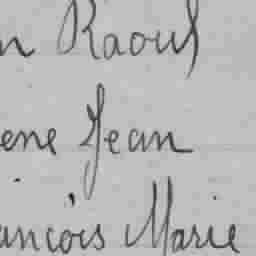 n Raoul
ene Jean
ancois Marie